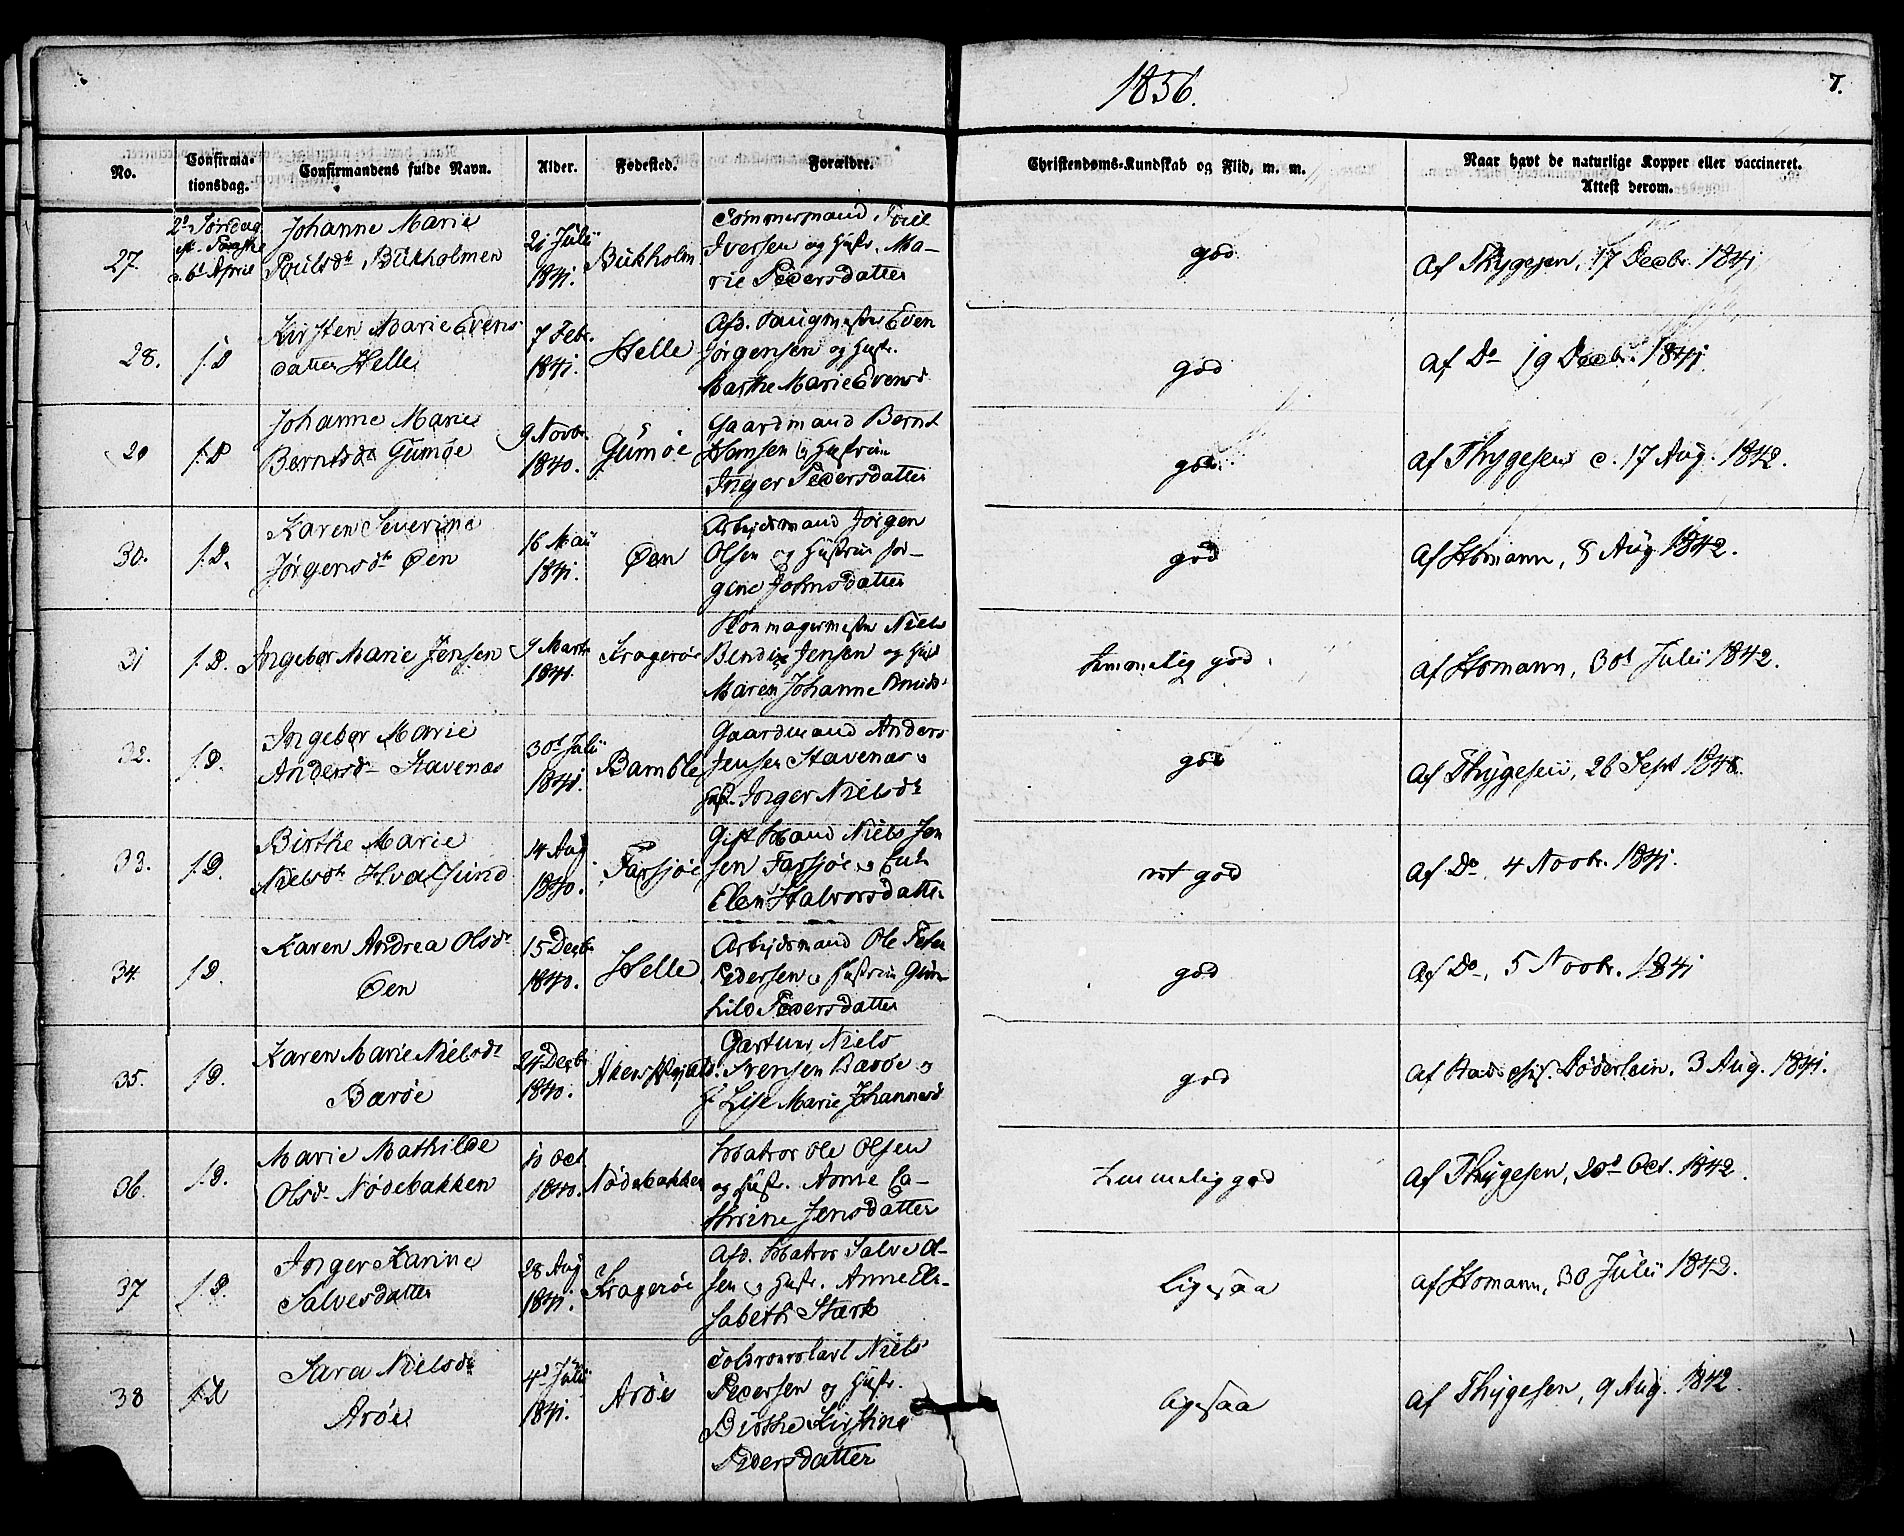 1856.
7.
No.
Confirma-
tionsdag.
Confirmandens fulde Navn.
Alder.
Fødested.
Forældre.
Christendoms-Kundskab og Flid, m. m.
Naar havt de naturlige Kopper eller vaccineret.
Attest derom.
27.
2d Søndag
eft. Paaske
d. 6t April
Johanne Marie
Poulsdr Bükholmen
21 Julii
1841.
Bükholm
Tømmermand Poul
Iversen og Hustr. Ma-
rie Pedersdatter
god
af Thygesen, 17 Decbr. 1841
28.
f. D
Kirsten Marie Evens
datter Helle
7 Febr.
1841.
Helle
Afd. Jørgensen og Hustr.
Marthe Marie Evensd
god
af Do 19 Decbr. 1841.
29
f. D
Johanne Marie
Berntsdr Gumøe
9 Novbr.
1840.
Gümøe
Gaardmand Bernt
Hansen & Hustruen
Inger Pedersdatter
god
af Thygesen d. 17 Aug. 1842.
30.
f. D.
Karen Severine
Jørgensdr Øen
16 Maii
1841.
Øen
Arbeidsmand Jørgen
Olsen og Hustruen Jør-
gine Johnsdatter
god
af Homann, 8 Aug 1842.
31
f. D.
Ingebor Marie Jensen
9 Marts
1841.
Kragerøe
Niels
Bendix Jensen og Hust
Maren Johanne Knuds.
temmelig god.
af Homann, 30t Julii 1842.
32.
f. D.
Ingebor Marie
Andersdr Stavenæs
30t Julii
1841.
Bamble
Gaardmand Anders
Jensen Stavenæs &
Hust. Inger Nielsdr
god
af Thygesen, 26 Sept 1841.
33.
f. D.
Birthe Marie
Nielsdr Hvalsund
14 Aug
1840.
Farsjøe
Gift Mand Niels Jen
sen Farsjøe &
Elen Halvorsdatter
ret god
af Do, 4 Novbr. 1841.
34.
f. D.
Karen Andrea Olsdr
Øen
15 Decbr
1840.
Helle
Arbeidsmand Ole Peter
Pedersen & Hustruen Gun
hild Pedersdatter
god
af Do, 5 Novbr. 1841
35.
f. D.
Karen Marie Nielsdr
Barøe
24 Decbr
1840.
Gartner Niels
Svensen Barøe &
H. Lise Marie Johannesd
god
af Döderlein. 3 Aug. 1841.
36.
f. D.
Marie Mathilde
Olsdr Nødebakken
10 Oct
1840.
Nødebakken
Matros Ole Olsen
og Hustr. Anne Ca-
thrine Jensdatter
temmelig god
af Thygesen, 20d Oct. 1842.
37
f. D.
Inger Karine
Salvesdatter
28 Aug
1841.
Kragerøe
Afd. Matros Salve Ol-
sen & Hustr. Anne Eli-
sabeth Stærk
ligesaa
af Homann, 30 Julii 1842.
38
f. D
Sara Nielsdr
Arøe
4d Julii
1841.
Arøe
Toldroerskarl Niels
Pedersen og Hustr.
Birthe Kirstine
Pedersdatter
ligesaa
af Thygesen, 9 Aug. 1842.